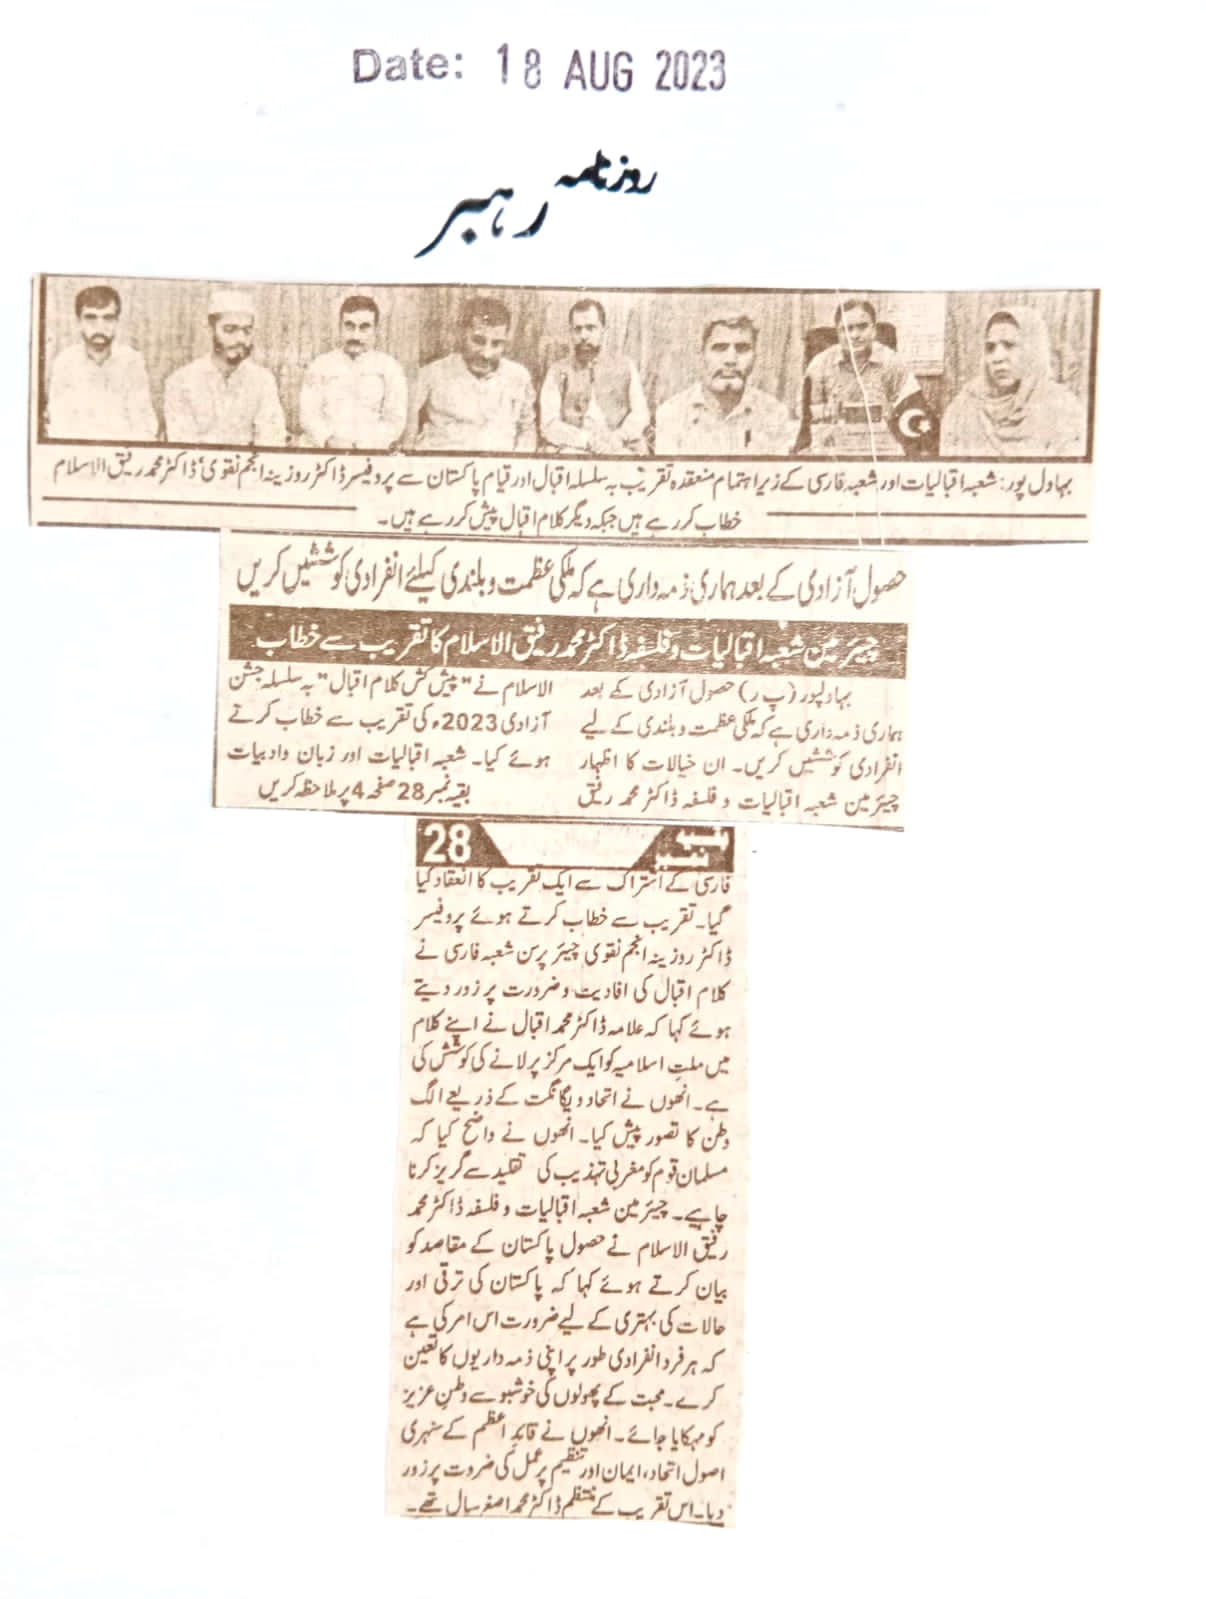 Date: 18 AUG 2023
روزنامہ رہبر
بہاول پور: شعبہ اقبالیات اور شعبہ فارسی کے زیر اہتمام منعقدہ تقریب بہ سلسلہ اقبال اور قیام پاکستان سے پروفیسر ڈاکٹر روزینہ انجم نقوی، ڈاکٹر محمد رفیق الاسلام
خطاب کر رہے ہیں جبکہ دیگر کلام اقبال پیش کر رہے ہیں۔
حصول آزادی کے بعد ہماری ذمہ داری ہے کہ ملکی عظمت و بلندی کیلئے انفرادی کوششیں کریں
چیئرمین شعبہ اقبالیات و فلسفہ ڈاکٹر محمد رفیق الاسلام کا تقریب سے خطاب
بہاولپور (پ ر) حصول آزادی کے بعد
ہماری ذمہ داری ہے کہ ملکی عظمت و بلندی کے لیے
انفرادی کوششیں کریں۔ ان خیالات کا اظہار
چیئرمین شعبہ اقبالیات و فلسفہ ڈاکٹر محمد رفیق
الاسلام نے "پیش کش کلام اقبال" بہ سلسلہ جشن
آزادی 2023ء کی تقریب سے خطاب کرتے
ہوئے کیا۔ شعبہ اقبالیات اور زبان و ادبیات
بقیہ نمبر 28 صفحہ 4 پر ملاحظہ کریں
بقیہ نمبر 28
فارسی کے اشتراک سے ایک تقریب کا انعقاد کیا
گیا۔ تقریب سے خطاب کرتے ہوئے پروفیسر
ڈاکٹر روزینہ انجم نقوی چیئر پرسن شعبہ فارسی نے
کلام اقبال کی افادیت و ضرورت پر زور دیتے
ہوئے کہا کہ علامہ ڈاکٹر محمد اقبال نے اپنے کلام
میں ملتِ اسلامیہ کو ایک مرکز پر لانے کی کوشش کی
ہے۔ انھوں نے اتحاد و یگانگت کے ذریعے الگ
وطن کا تصور پیش کیا۔ انھوں نے واضح کیا کہ
مسلمان قوم کو مغربی تہذیب کی تقلید سے گریز کرنا
چاہیے۔ چیئرمین شعبہ اقبالیات و فلسفہ ڈاکٹر محمد
رفیق الاسلام نے حصول پاکستان کے مقاصد کو
بیان کرتے ہوئے کہا کہ پاکستان کی ترقی اور
حالات کی بہتری کے لیے ضرورت اس امر کی ہے
کہ ہر فرد انفرادی طور پر اپنی ذمہ داریوں کا تعین
کرے۔ محبت کے پھولوں کی خوشبو سے وطنِ عزیز
کو مہکایا جائے۔ انھوں نے قائدِ اعظم کے سنہری
اصول اتحاد، ایمان اور تنظیم پر عمل کی ضروت پر زور
دیا۔ اس تقریب کے منتظم ڈاکٹر محمد اصغر سیال تھے۔